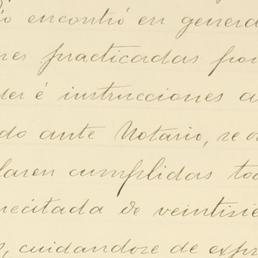 ó encontró en genera
nes practicadas por
der é instrucciones a
do ante Notario, se o
laren cumplidas to
recitada de veintisie
s, cuidandose de expr